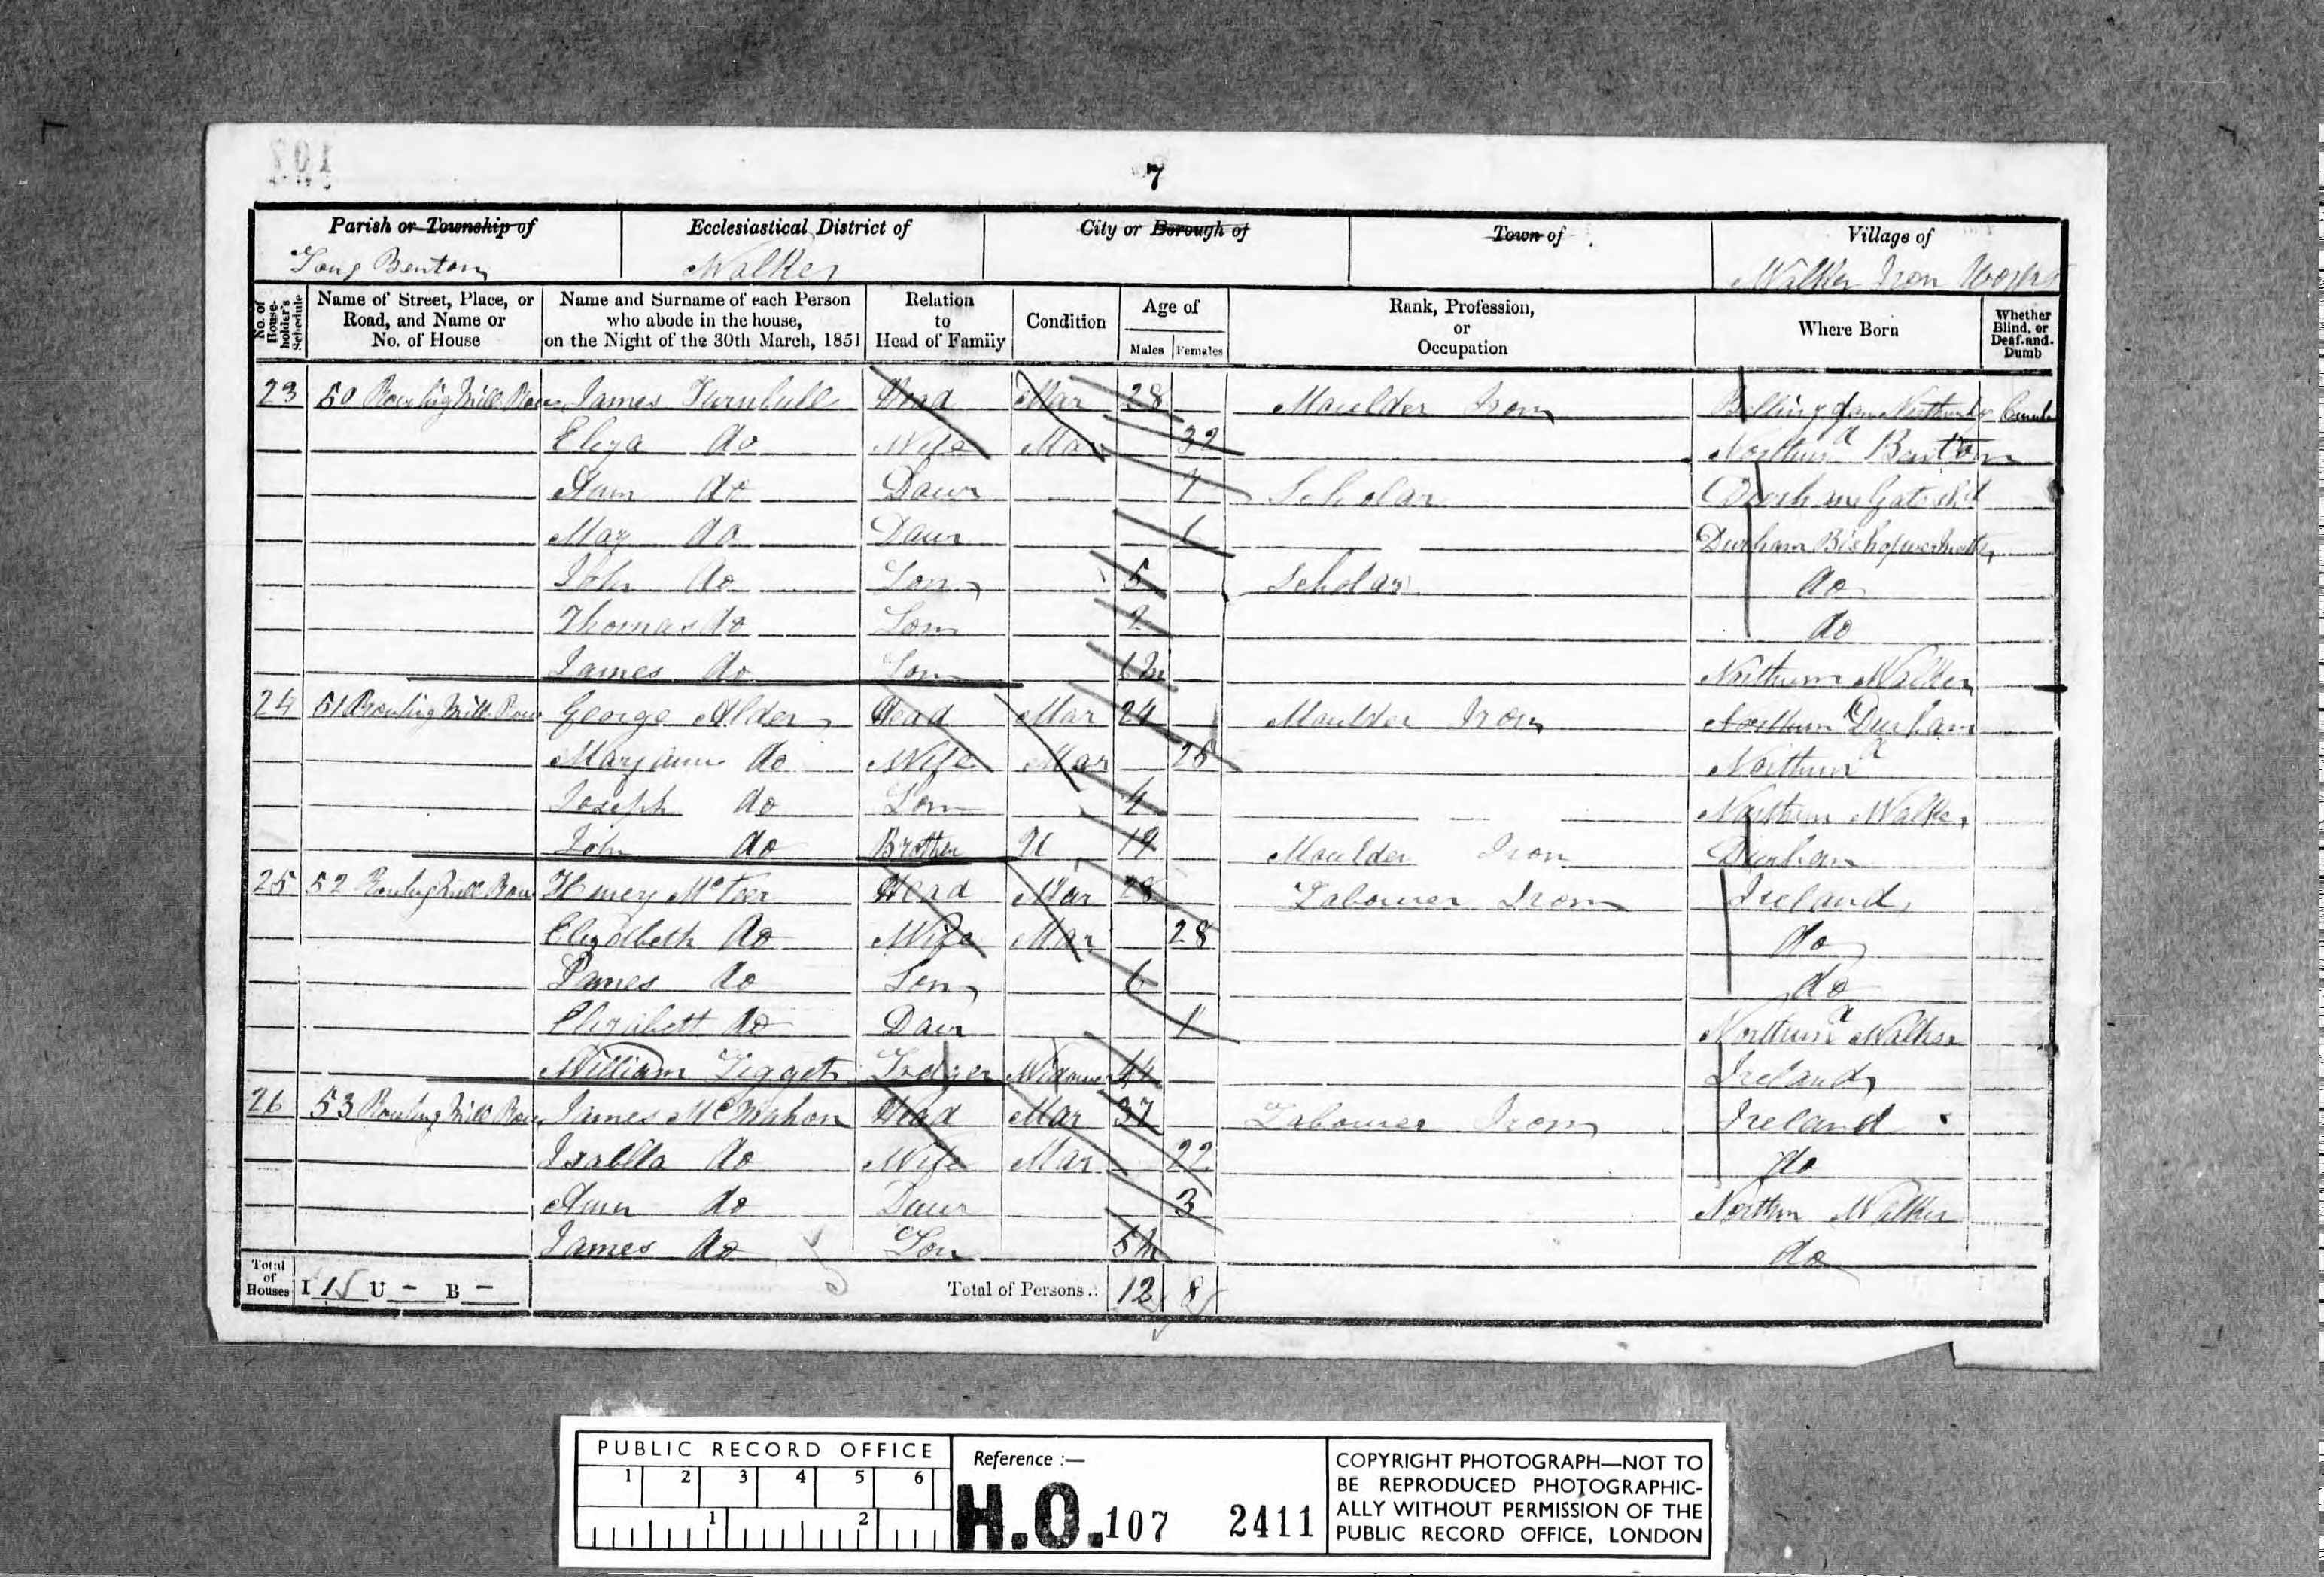 7
Parish or Township of Ecclesiastical District of City or Borough of Town of Village of
Long Benton Walker Walker Iron Works
No. of House-holder's Schedule Name of Street, Place, or Road, and Name or No. of House Name and Surname of each Person who abode in the house, on the Night of the 30th March, 1851 Relation to Head of Family Condition Age of Males Females Rank, Profession, or Occupation Where Born Whether Blind, or Deaf-and-Dumb
23 50 Rowling Mill Row James Turnbull Head Mar 28 Moulder Iron
Eliza do Wife Mar 32 Northum Benton
Ann do Daur 7 Scholar Durham Gateshd
Mary do Daur 6 Durham
John do Son 5 Scholar do
Thomas do Son 2 do
James do Son Northum Walker
24 51 Rowling Mill Row George Alder Head Mar 24 Moulder Iron Northum Durham
Maryann do Wife Mar 25 Northum
Joseph do Son 4 Northum Walker
John do Brother U 19 Moulder Iron Durham
25 52 Rowling Mill Row Henry Head Mar 28 Labourer Iron Ireland
Elizabeth do Wife Mar 28 do
James do Son 6 do
Elizabeth do Daur 1 Northum Walker
William Liggett Lodger Widower 44 Ireland
26 53 Rowling Mill Row James McMahon Head Mar 37 Labourer Iron Ireland
Isabella do Wife Mar 22 do
Ann do Daur 3 Northum Walker
James do Son 5m do
Total of Houses I U - B - Total of Persons 12 8
PUBLIC RECORD OFFICE
1 2 3 4 5 6
1 2
Reference :—
H.O. 107 2411
COPYRIGHT PHOTOGRAPH—NOT TO
BE REPRODUCED PHOTOGRAPHIC-
ALLY WITHOUT PERMISSION OF THE
PUBLIC RECORD OFFICE, LONDON